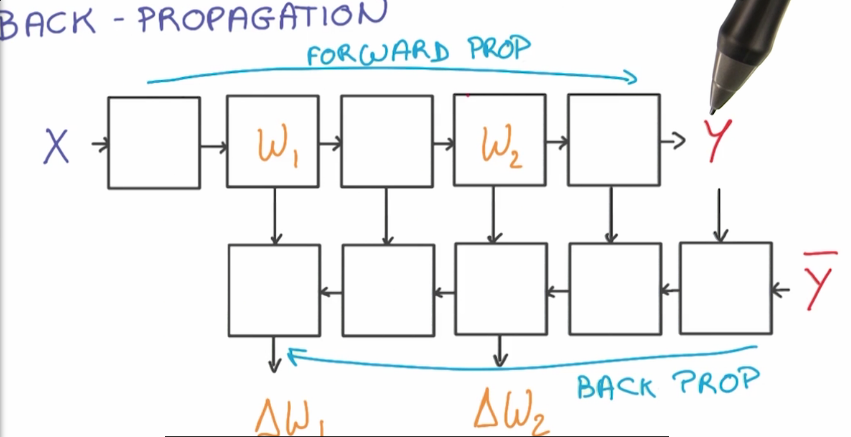 BACK - PROPAGATION
FORWARD PROP
X W₁ W₂ Y
Y̅
BACK PROP
ΔW₁ ΔW₂